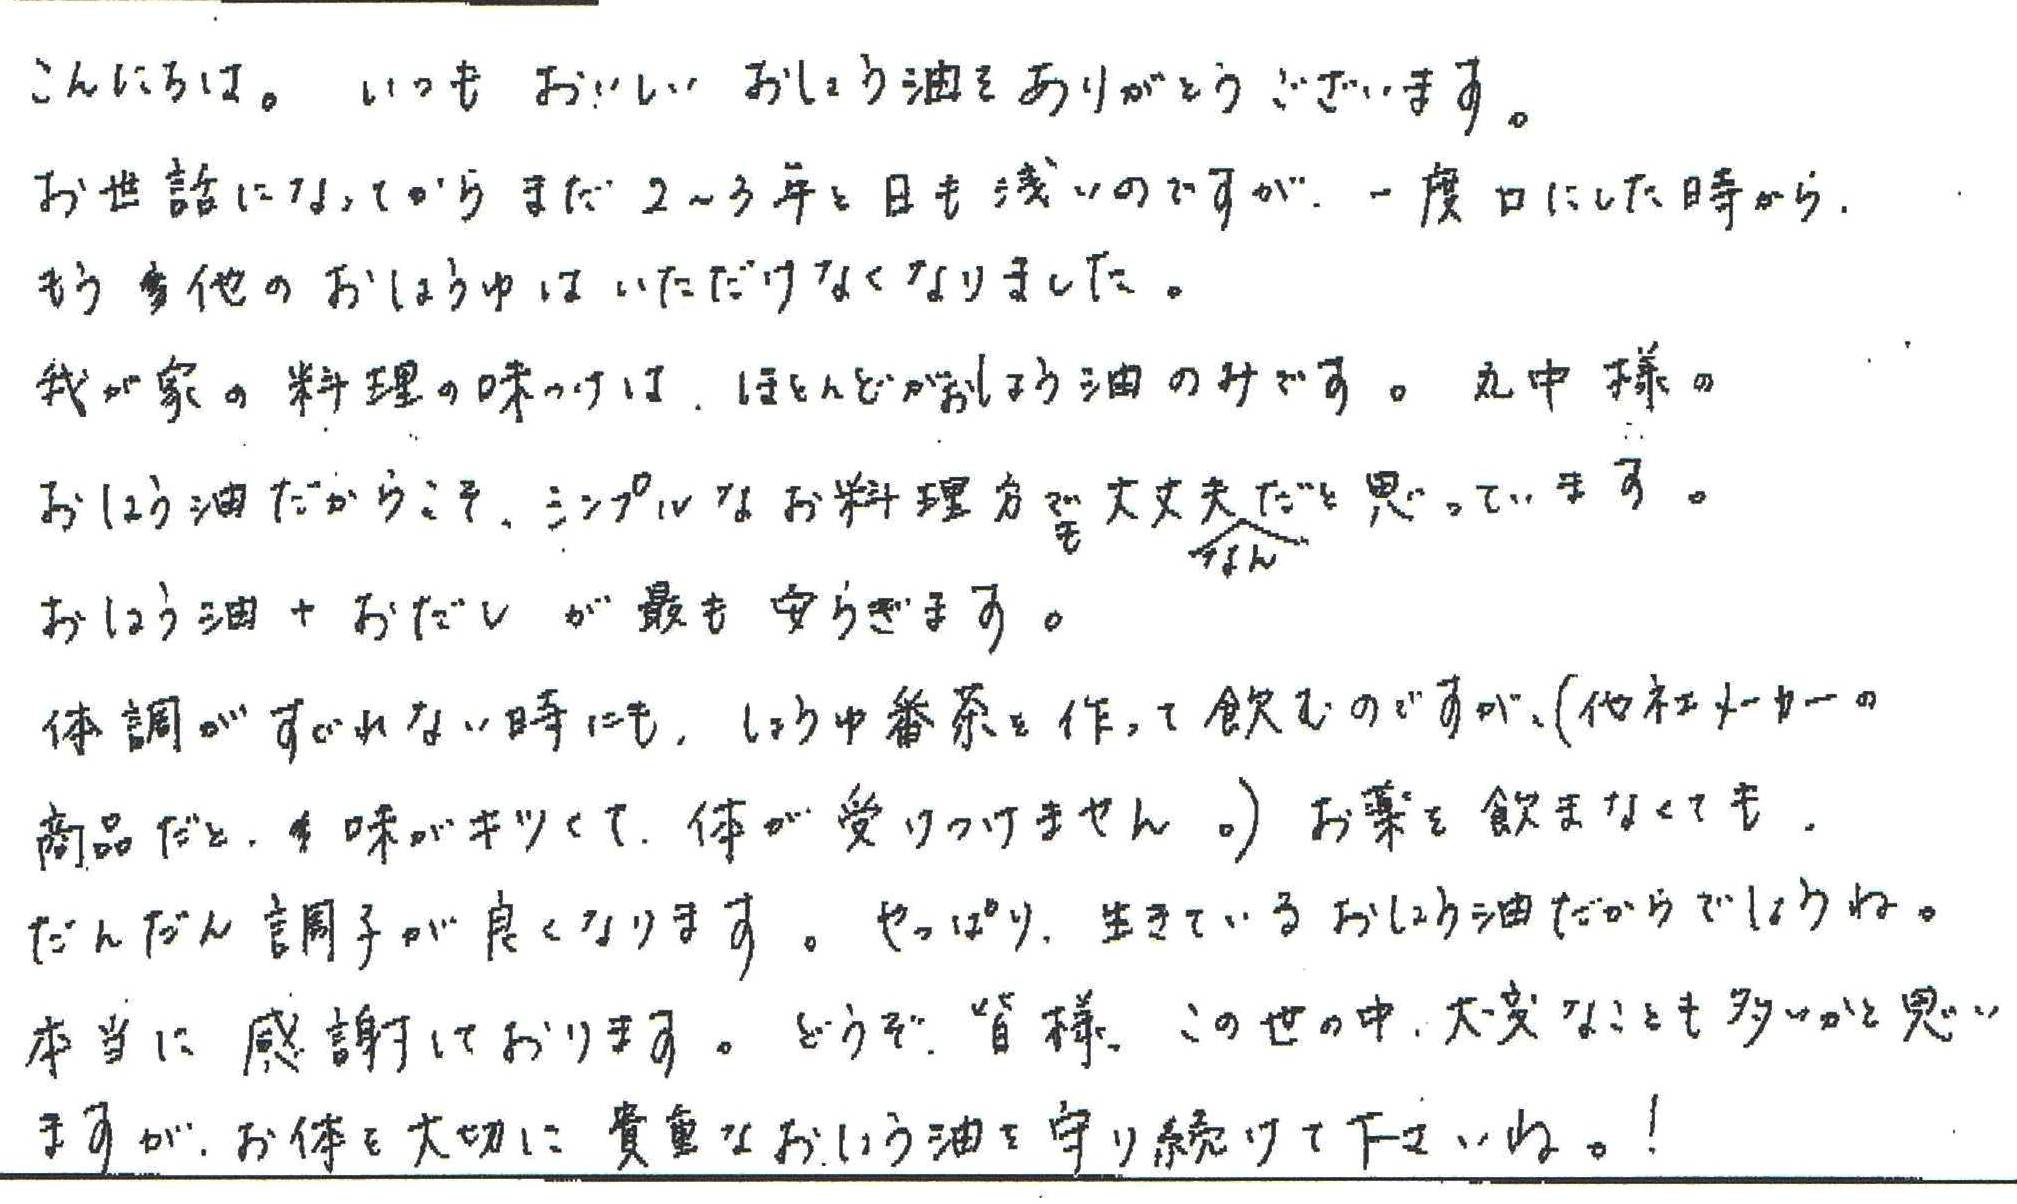 こんにちは。 いつも おいしい おしょう油を ありがとう ございます。
お世話になってから まだ 2~3年と 日も 浅いのですが、一度口にした時から、
もう 他の おしょうゆは いただけなくなりました。
我が家の 料理の味つけは、ほとんどがおしょう油のみです。 丸中 様の
おしょう油だからこそ、シンプルな お料理方でも 大丈夫なんだと 思っています。
おしょう油 + おだし が 最も 安らぎます。
体調がすぐれない時にも、しょうゆ番茶を 作って 飲むのですが、(他社メーカーの
商品だと、味がキツくて、体が 受けつけません。) お薬を 飲まなくても、
だんだん 調子が 良くなります。 やっぱり、生きている おしょう油だからでしょうね。
本当に 感謝しております。 どうぞ、皆様、 この世の中、大変なことも 多いかと 思い
ますが、お体を大切に 貴重なおしょう油を 守り続けて下さいね。!